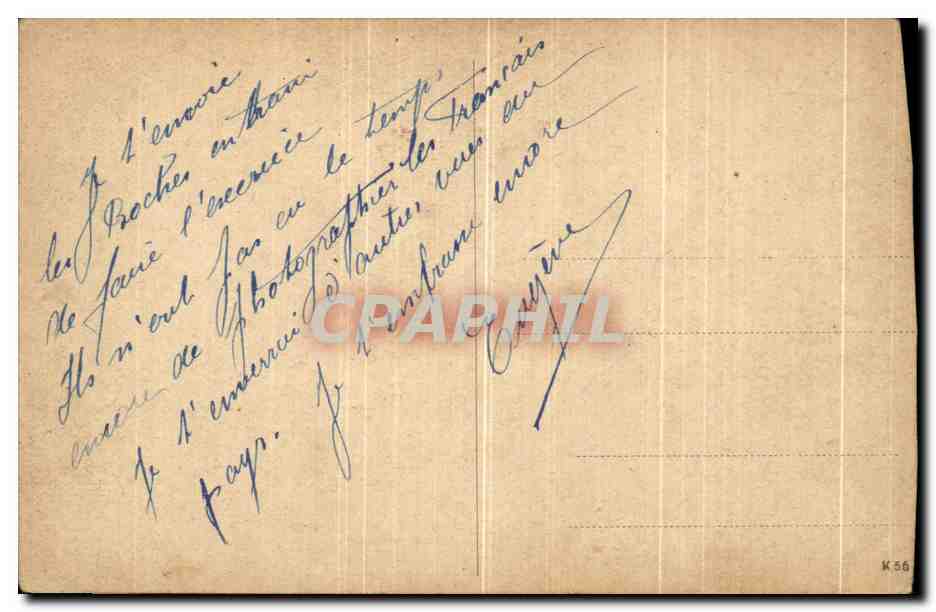 Je t'envoie
les Boches en train
de faire l'exercice
Ils n'ont pas eu le temps
encore de photographier les Français
Je t'enverrai d'autres vues du
pays. Je t'embrasse encore
Eugène
CPARAMA
K 56